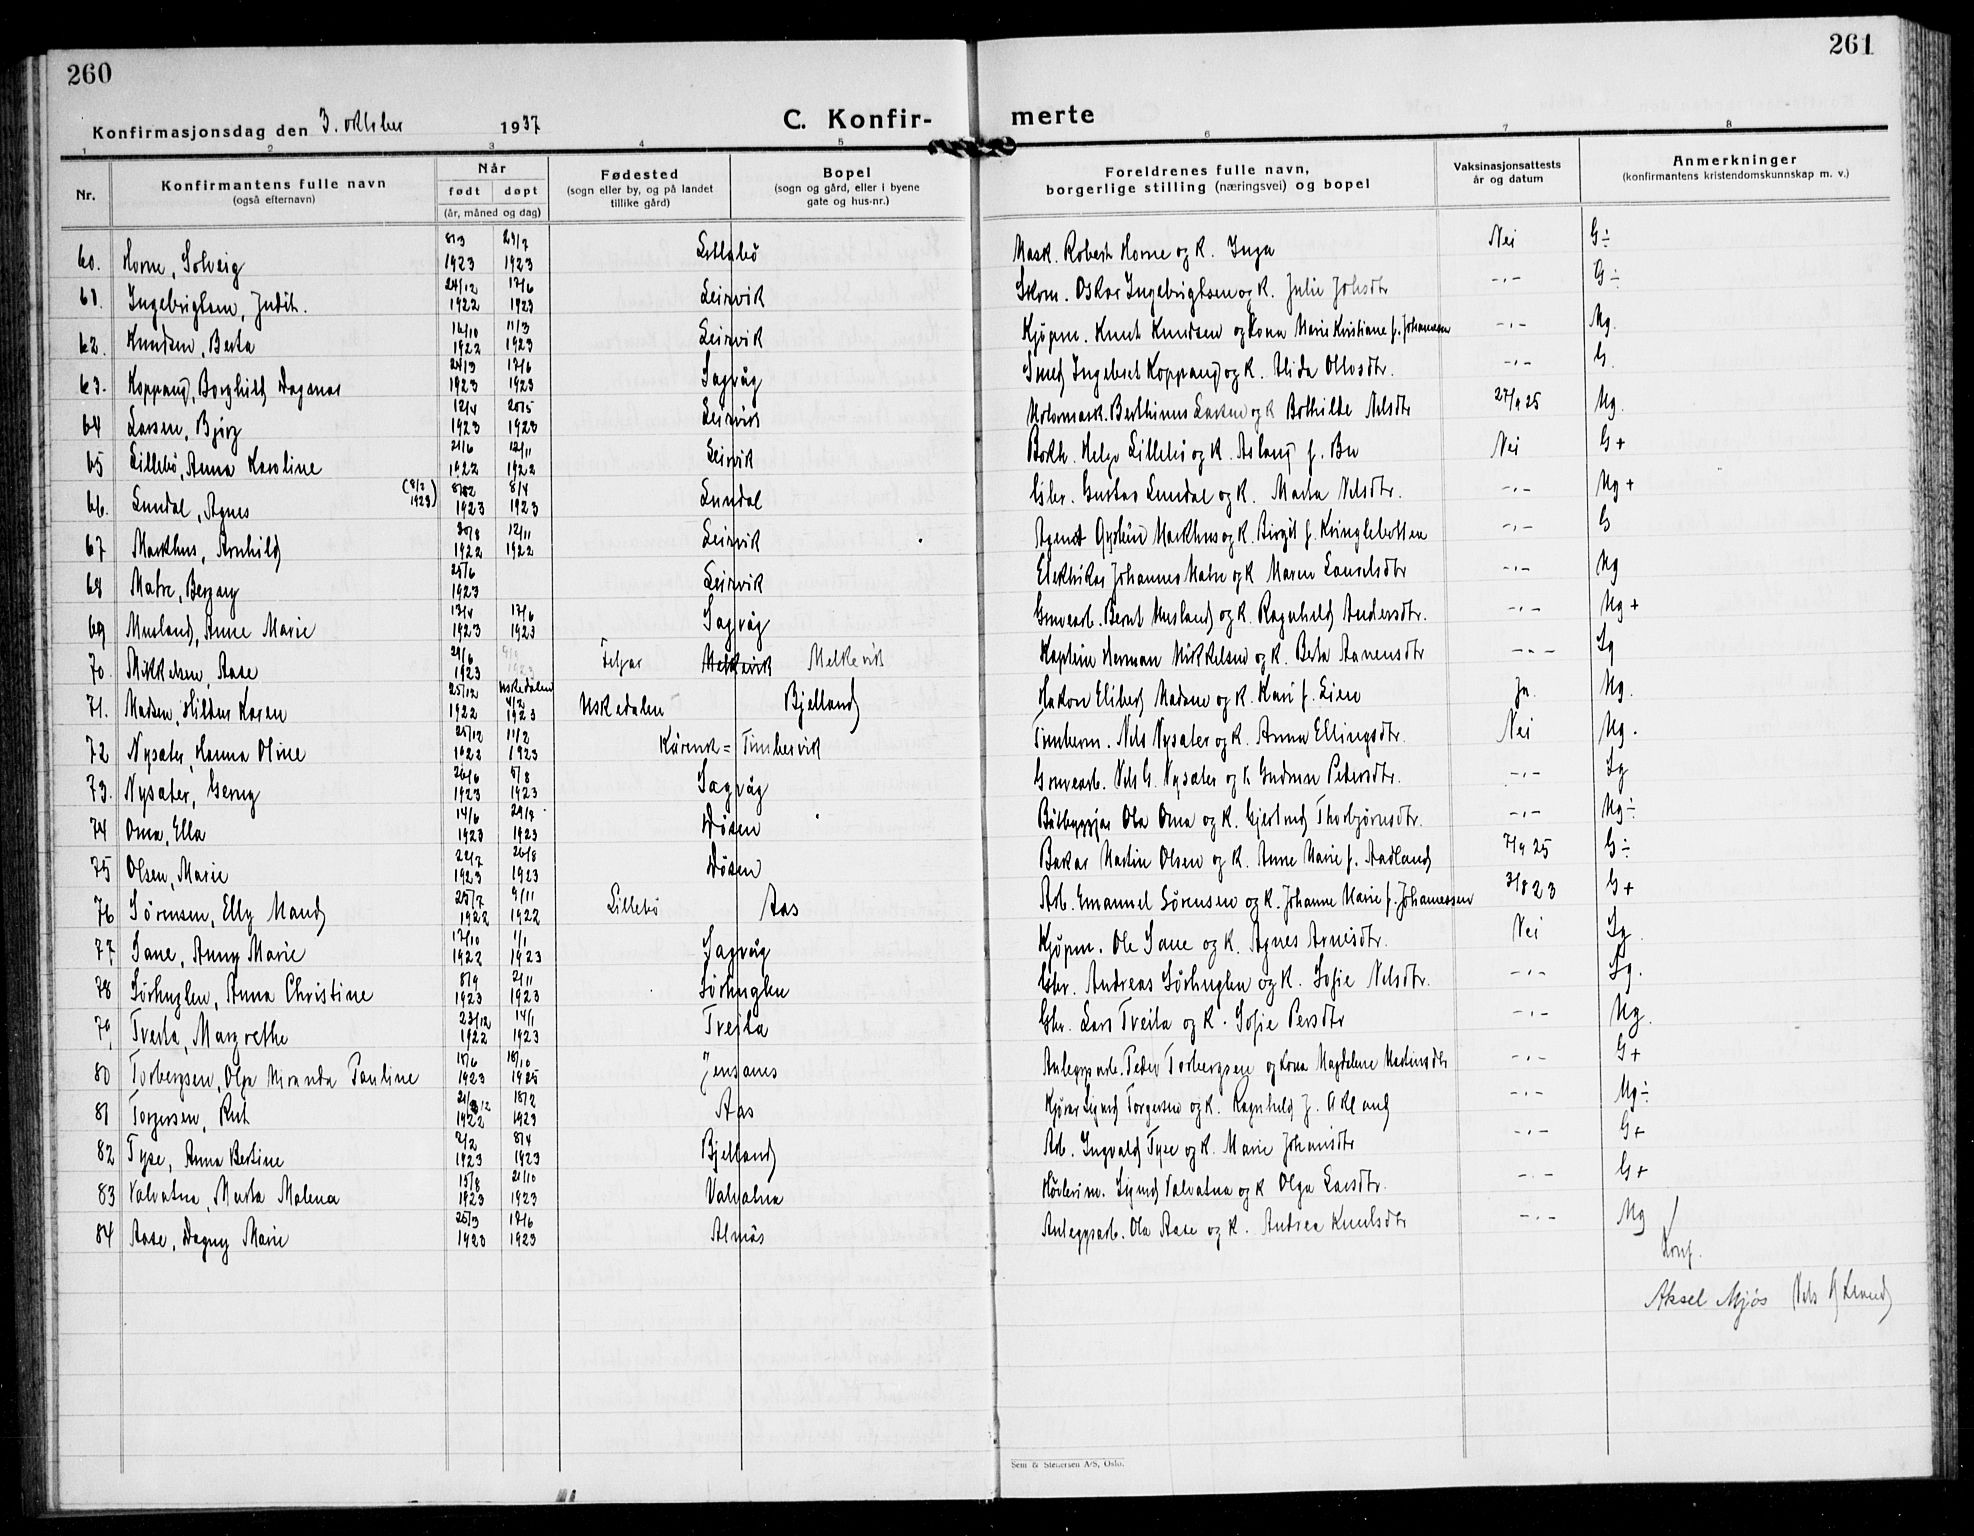 260
261
Konfirmasjonsdag den 3. oktober 1937
C. Konfir- merte
1 2 3 4 5 6 7 8
Nr. Konfirmantens fulle navn (også efternavn) Når født døpt (år, måned og dag) Fødested (sogn eller by, og på landet tillike gård) Bopel (sogn og gård, eller i byene gate og hus-nr.) Foreldrenes fulle navn, borgerlige stilling (næringsvei) og bopel Vaksinasjonsattests år og datum Anmerkninger (konfirmantens kristendomskunnskap m. v.)
60. Horne, Solveig 8/3 1923 29/7 1923 Lillebø Mask. Robert Horne og K. Inga Nei G÷
61. Ingebrigtsen, Judit. 24/12 1922 17/6 1923 Leirvik Skom. Oskar Ingebrigtsen og K. Julie Johsdtr -"- G÷
62. Knudsen, Berta 16/10 1922 11/3 1923 Leirvik Kjøpm. Knut Knudsen og Kona Marie Kristiane f. Johannesen -"- Mg.
63. Koppang, Borghild Dagmar 24/3 1923 17/6 1923 Sagvåg Smed Ingebret Koppang og K. Alida Olsdtr. -"- G.
64 Larsen, Bjørg 12/4 1923 20/5 1923 Leirvik Motormask. Berthinus Larsen og K Bothilde Nilsdtr 27/9 25 Mg.
65 Lillebø, Anna Karoline 21/6 1922 12/11 1922 Leirvik Bokh. Helge Lillebø og K. Aslaug f. Bu Nei G+
66. Lundal, Agnes (8/2 1923) 8/2 1923 8/4 1923 Lundal Gbr. Gustav Lundal og K. Marta Nilsdtr. -"- Mg+
67 Markhus, Arnhild 30/8 1922 12/11 1922 Leirvik Agent Øystein Markhus og K. Birgit f. Kvinglebotten -"- G
68 Matre, Bergny 25/6 1923 Leirvik Elektriker Johannes Matre og K Maren Lauritsdtr -"- Mg
69 Musland, Anne Marie 13/4 1923 17/6 1923 Sagvåg Gruvearb. Bernt Musland og K. Ragnhild Andersdtr. -"- Mg+
70. Mikkelsen, Aase 29/6 1923 1923 Fitjar Melkevik Melkevik Kaptein Herman Mikkelsen og K. Berta Aanensdtr -"- Sg
71. Madsen, Hildur Karen 25/12 1922 Uskedalen 4/2 1923 Uskedalen Bjelland Hakon Elibert Madsen og K. Kari f. Eien Ja. Mg.
72 Nysæter, Hanna Oline 25/12 1922 11/2 1923 Kårevik = Timbervik Timberm. Nils Nysæter og K. Anna Ellingsdtr. Nei Mg.
73. Nysæter, Gerny 26/6 1923 5/8 1923 Sagvåg Gruvearb. Nils G. Nysæter og K Gudrun Pedersdtr. -"- Sg
74 Oma, Ella 14/6 1923 29/7 1923 Døsen Båtbyggjar Ola Oma og K. Gjertrud Thorbjørnsdtr. -"- Mg÷
75 Olsen, Marie 22/7 1923 26/8 1923 Døsen Bakar Martin Olsen og K. Anne Marie f. Aadland 7/9 25 G÷
76 Sørensen, Elly Maud 25/7 1922 9/11 1922 Lillebø Aas Arb. Emanuel Sørensen og K. Johanne Marie f. Johannessen 3/8 23 G+
77 Sane, Anny Marie 17/10 1922 1/1 1923 Sagvåg Kjøpm. Ole Sane og K. Agnes Arnesdtr. Nei Sg
78 Sørhuglen, Anna Christine 8/9 1923 2/11 1923 Sørhuglen Gbr. Andreas Sørhuglen og K. Sofie Nilsdtr. -"- Sg.
79, Tveita, Margrethe 23/12 1922 14/1 1923 Tveita Gbr. Lars Tveita og K. Sofie Persdtr -"- Mg.
80 Torbergsen, Olga Miranda Pauline 15/6 1923 18/10 1925 Jensanes Anleggsarb. Peder Torbergsen og Kona Magdalene Martinsdtr -"- G+
81 Torgersen, Rut 21/12 1922 18/2 1923 Aas Kjører Sigurd Torgersen og K. Ragnhild f. Økland -"- Mg÷
82 Tyse, Anna Bertine 2/2 1923 8/4 1923 Bjelland Arb. Ingvald Tyse og K. Marie Johansdtr -"- G+
83 Valvatna, Marta Malena 15/8 1923 21/10 1923 Valvatna Sigurd Valvatna og K Olga Larsdtr. -"- G+
84 Aase, Dagny Marie 25/3 1923 17/6 1923 Almås Anleggsarb. Ola Aase og K. Andrea Knutsdtr -"- Mg
Konf.
Aksel Mjøs Nils
Sem & Stenersen A/S, Oslo.